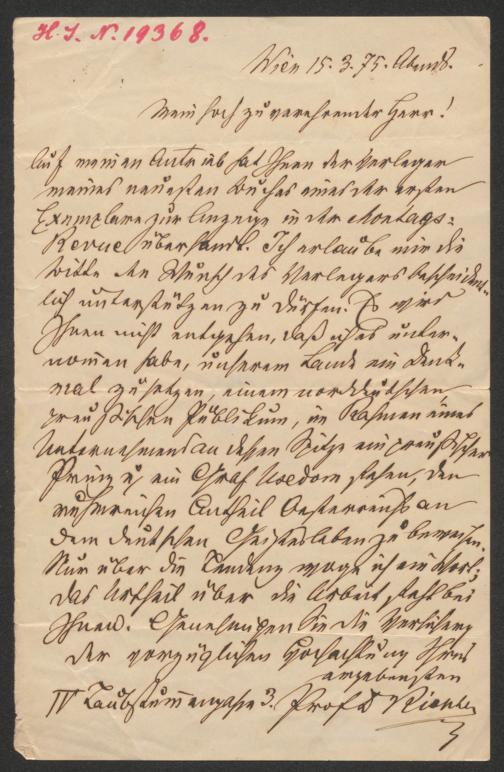 H. I. N. 19368.
Wien 15.3.75. Abends.
Mein hoch zu verehrender Herr!
Auf meinen Antrieb hat Ihnen der Verleger
meines neuesten Buches eines der ersten
Exemplare zur Anzeige in der Montags-
Revue übersandt. Ich erlaube mir die
Bitte den Wunsch des Verlegers bescheident-
lich unterstützen zu dürfen. Es wird
Ihnen nicht entgehen, daß ich es unter-
nommen habe, unserem Lande ein Denk-
mal zu setzen, einem norddeutschen
preußischen Publikum, im Rahmen eines
Unternehmens an dessen Spitze ein preußischer
Prinz u ein Graf Usedom stehen, den
ruhmreichen Antheil Oesterreichs an
dem deutschen Geistesleben zu beweisen.
Nur über die Tendenz wage ich ein Wort,
das Urtheil über die Arbeit steht bei
Ihnen. Genehmigen Sie die Versicherg
der vorzüglichen Hochachtung Ihres
ergebensten
IV Taubstummengasse 3. Prof D Richter